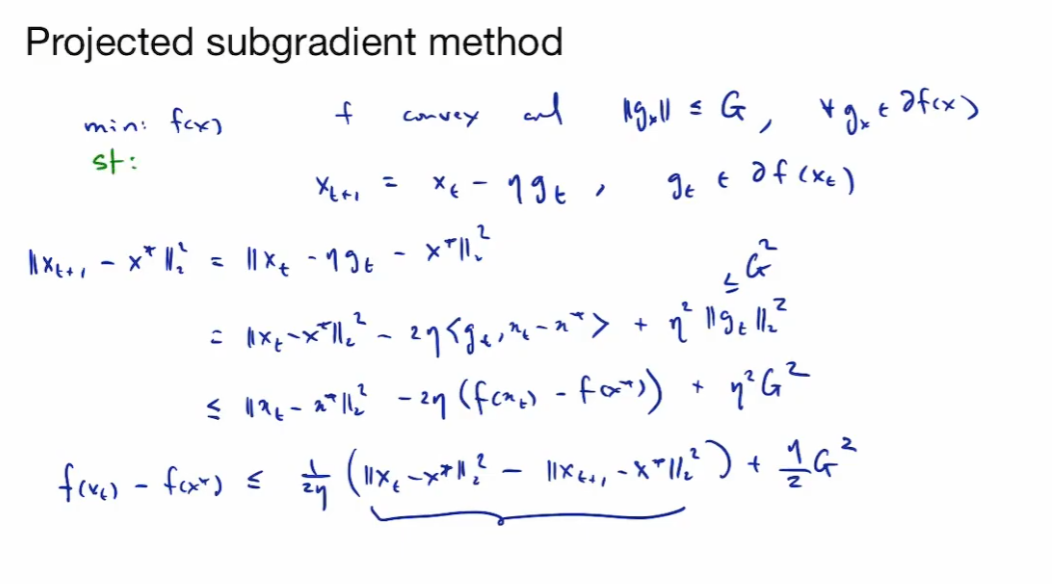 Projected subgradient method
min: f(x)    f convex and ‖gₓ‖ ≤ G, ∀ gₓ ∈ ∂f(x)
st:
xₜ₊₁ = xₜ − ηgₜ , gₜ ∈ ∂f(xₜ)
‖xₜ₊₁ − x*‖₂² = ‖xₜ − ηgₜ − x*‖₂²
≤ G²
= ‖xₜ − x*‖₂² − 2η⟨gₜ, xₜ − x*⟩ + η²‖gₜ‖₂²
≤ ‖xₜ − x*‖₂² − 2η(f(xₜ) − f(x*)) + η²G²
f(xₜ) − f(x*) ≤ 1/2η (‖xₜ − x*‖₂² − ‖xₜ₊₁ − x*‖₂²) + η/2 G²